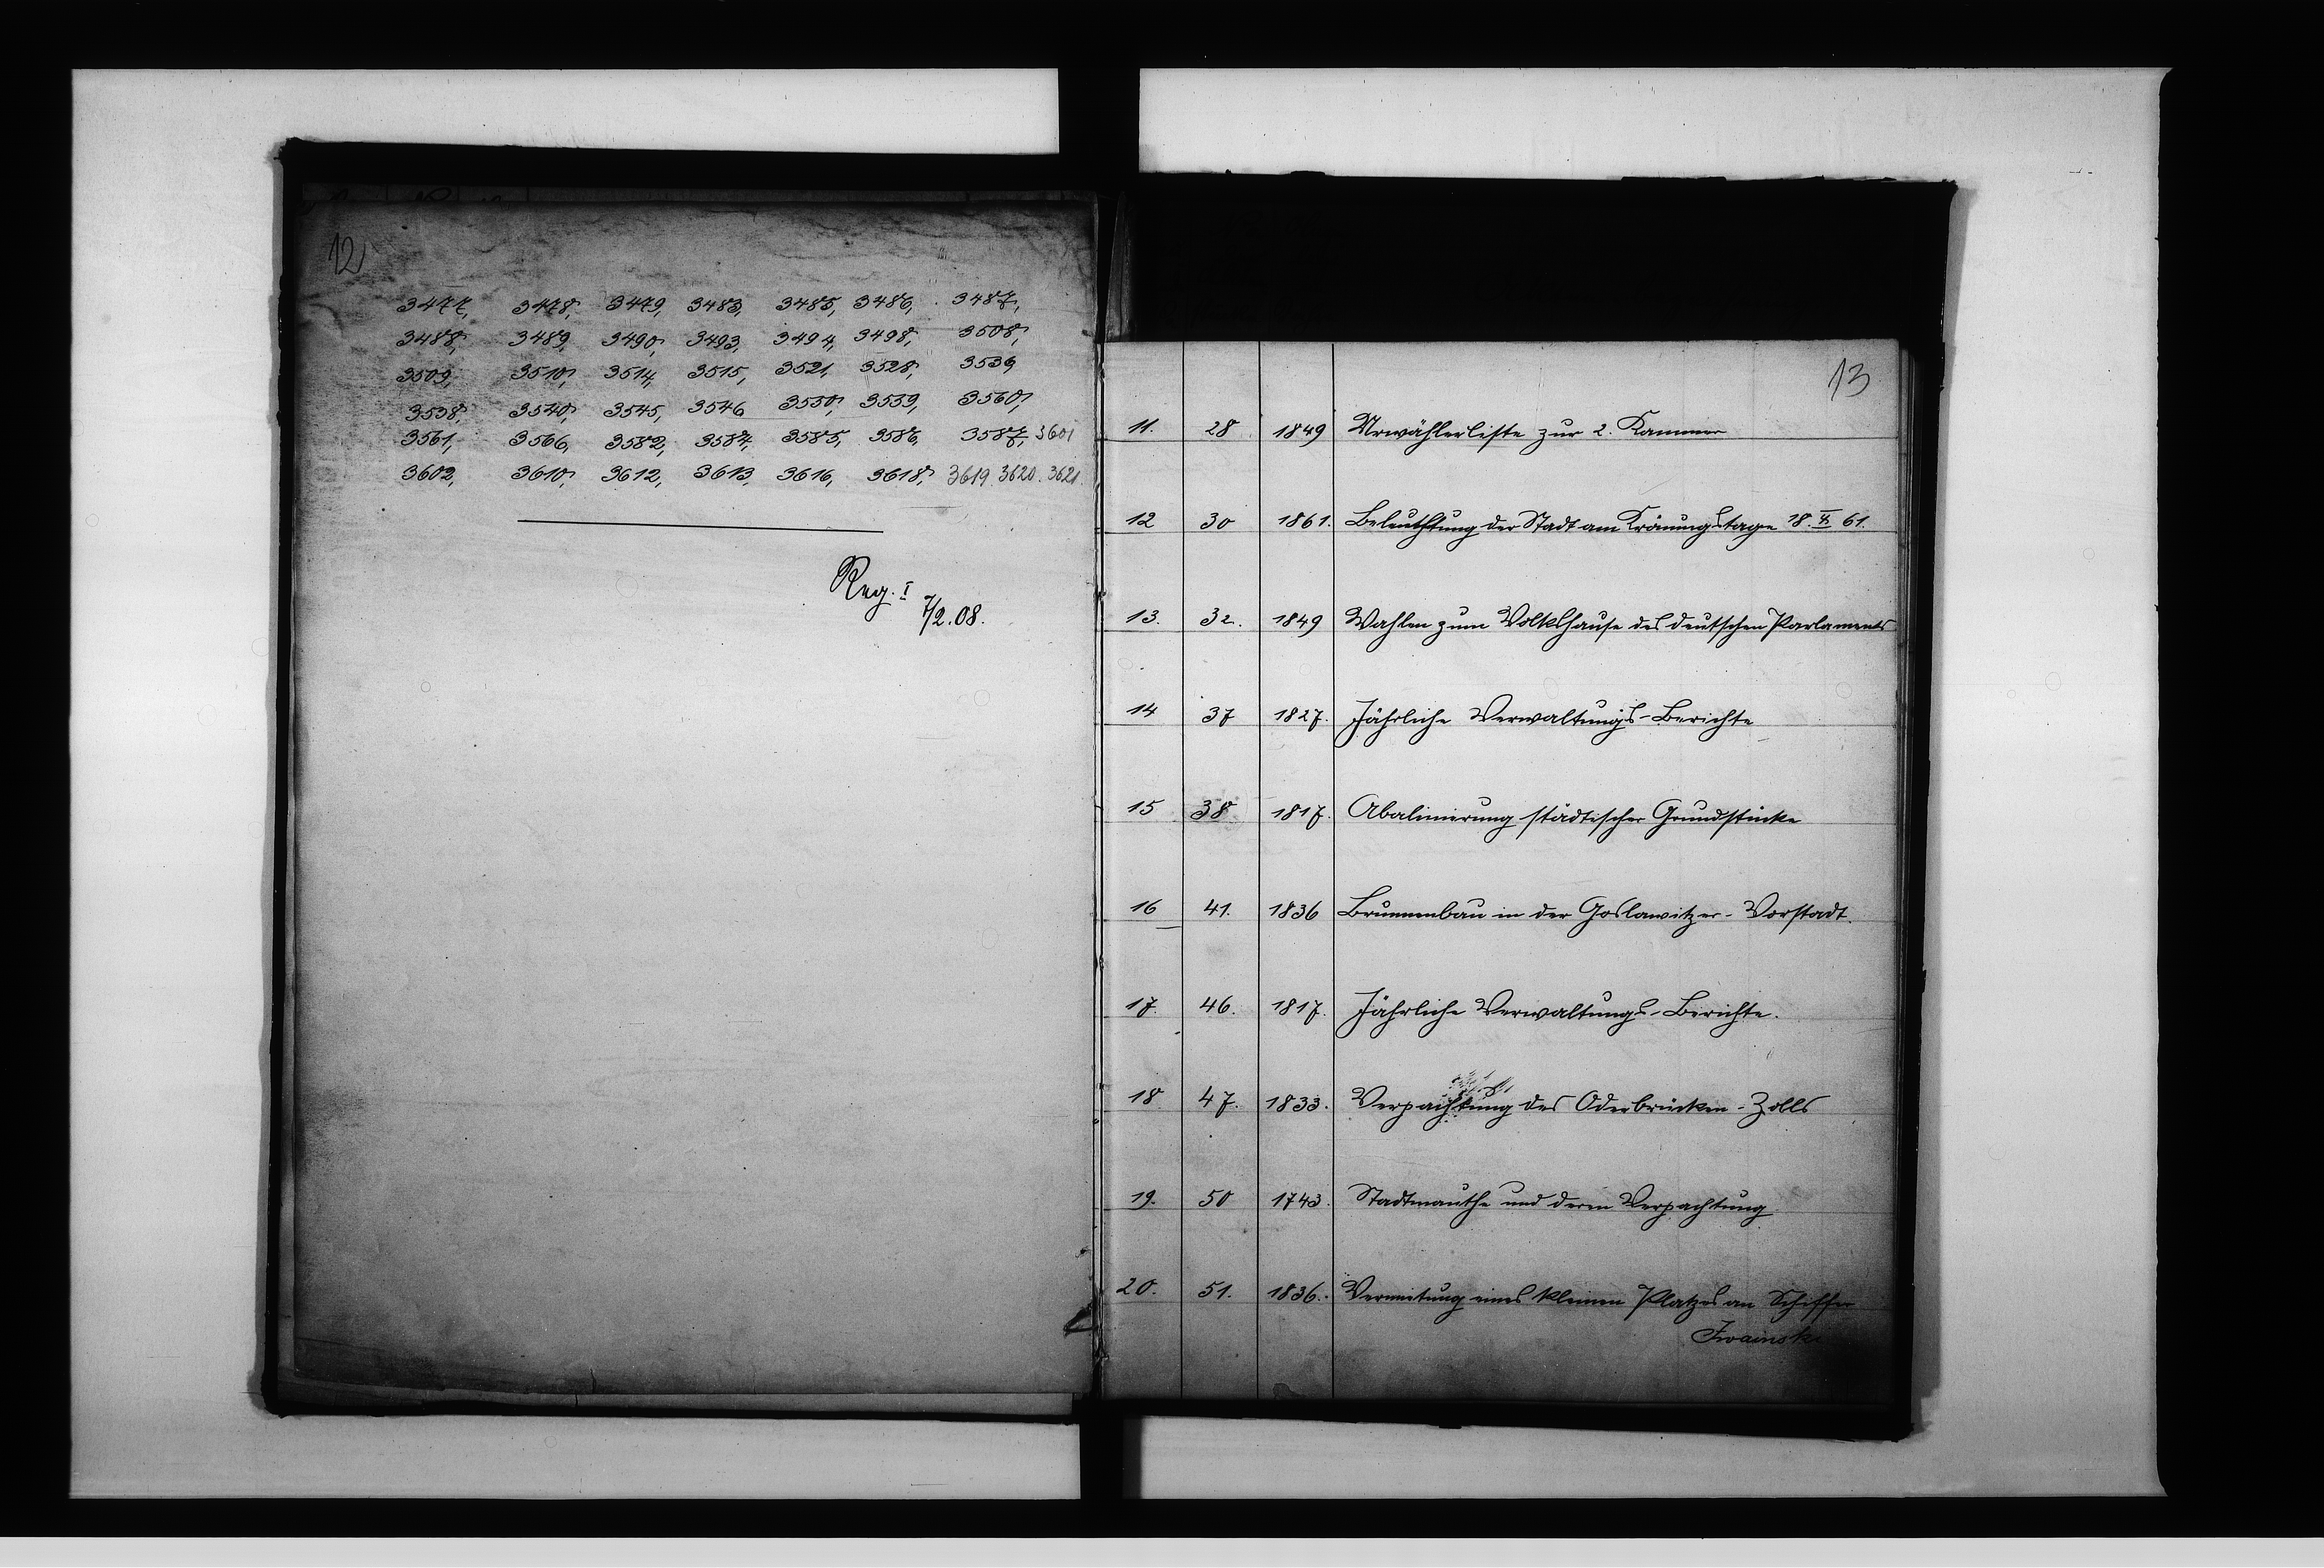 12
3477, 3478, 3479, 3483, 3485, 3486, 3487,
3488, 3489, 3490, 3493, 3494, 3498, 3508,
3509, 3510, 3514, 3515, 3521, 3528, 3536
3538, 3540, 3545, 3546 3550, 3559, 3560,
3561, 3566, 3582, 3584, 3585, 3586, 3587, 3601
3602, 3610, 3612, 3613, 3616, 3618, 3619. 3620. 3621.
Reg. I
7/2.08.
13
11. 28 1849 Urwählerliste zur 2. Kammer
12 30 1861. Beleuchtung der Stadt am Krönungstage 18. 61.
13. 32. 1849 Wahlen zum Volkshause des deutschen Parlaments
14 37 1827. Jährliche Verwaltungs-Berichte
15 38 1817. Abalinierung städtischer Grundstücke
16 41. 1836 Brunnenbau in der Goslawitzer-Vorstadt.
17. 46. 1817. Jährliche Verwaltungs-Berichte.
18 47. 1833. Verpachtung des Oderbrücken-Zolls
19. 50 1743. Stadtmauthe und deren Verpachtung
20. 51. 1836. Vermietung eines kleinen Platzes an Schiffer